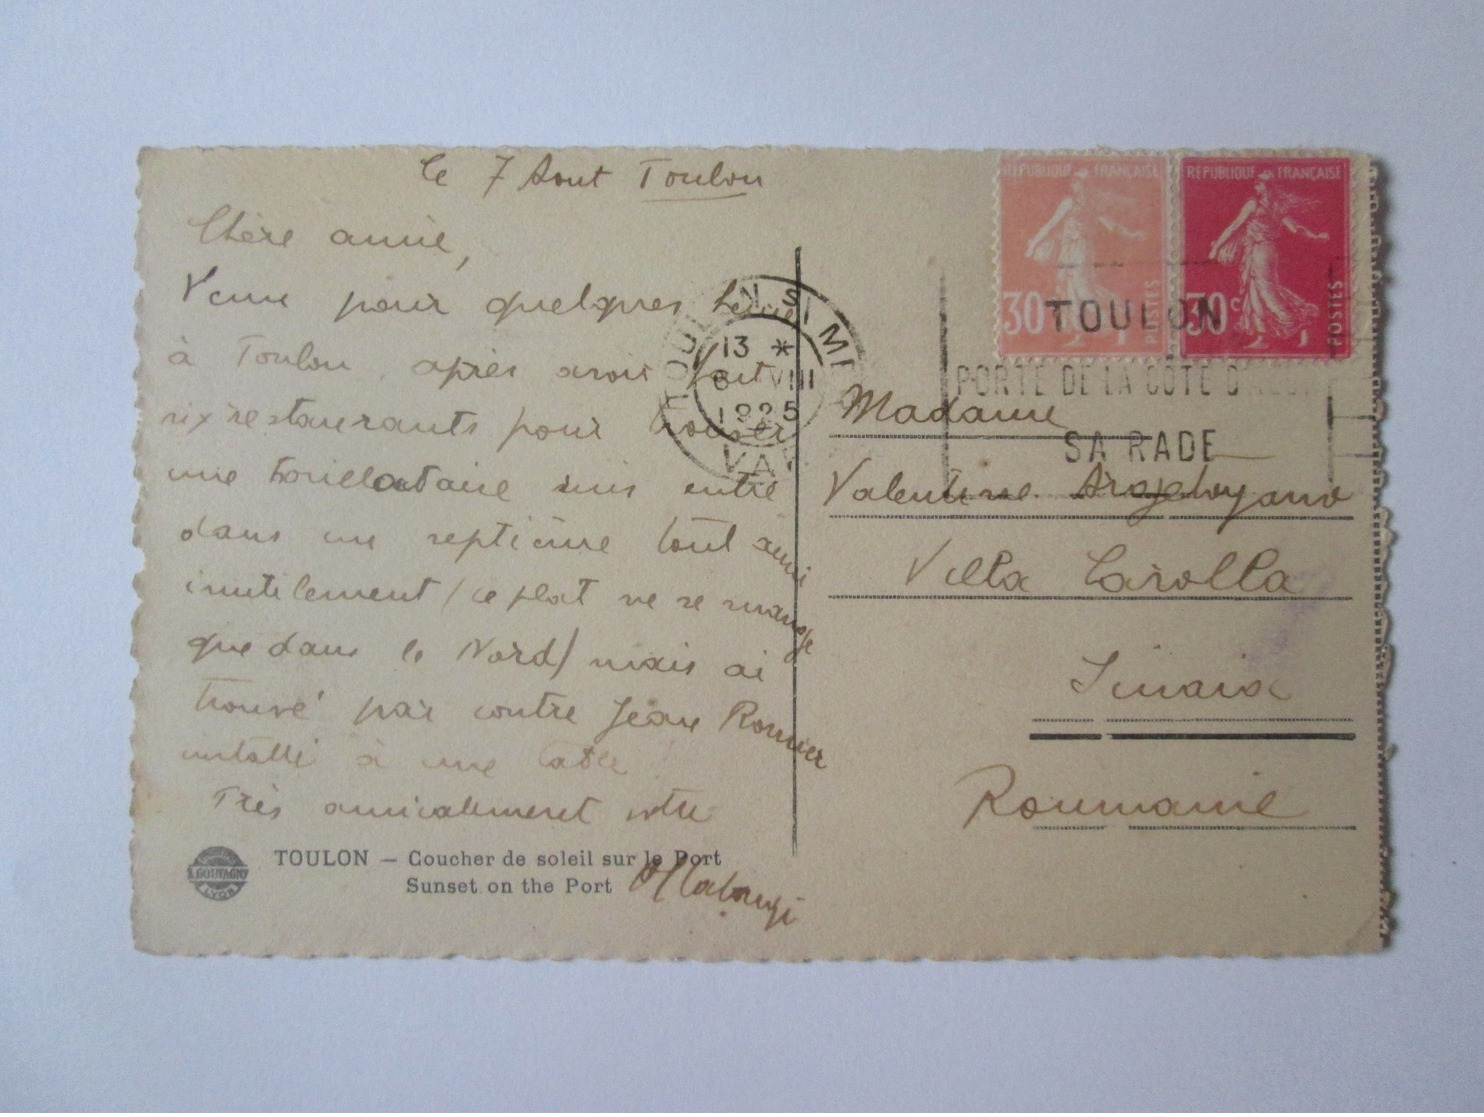 le 7 Aout Toulon
Chère amie,
Venue pour quelques
à Toulon, après avoir fait
six restaurants pour trouver
une suis entré
dans un septième tout aussi
inutilement (ce plat ne se mange
que dans le Nord) mais ai
trouvé par contre Jean Romier
installé à une table !
Très amicalement votre
TOULON — Coucher de soleil sur le Port
Sunset on the Port
GOUTAGNY
LYON
TOULON S/ MER
13 *
8 VIII
VAR
REPUBLIQUE FRANÇAISE
30 c
POSTES
REPUBLIQUE FRANÇAISE
30 c
POSTES
TOULON
PORTE DE LA CÔTE D'AZUR
SA RADE
Madame
Valentine
Villa Carolla
Sinaia
Roumanie